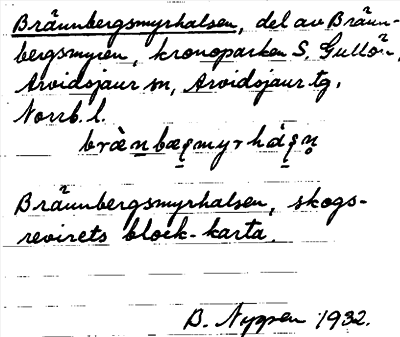 Brännbergsmyrhalsen, del av Bränn-
bergsmyren, kronoparken S. Gullön,
Arvidsjaur sn, Arvidsjaur tg.
Norrb. l.
Brännbergsmyrhalsen, skogs-
revirets block-karta.
B. Nygren 1932.